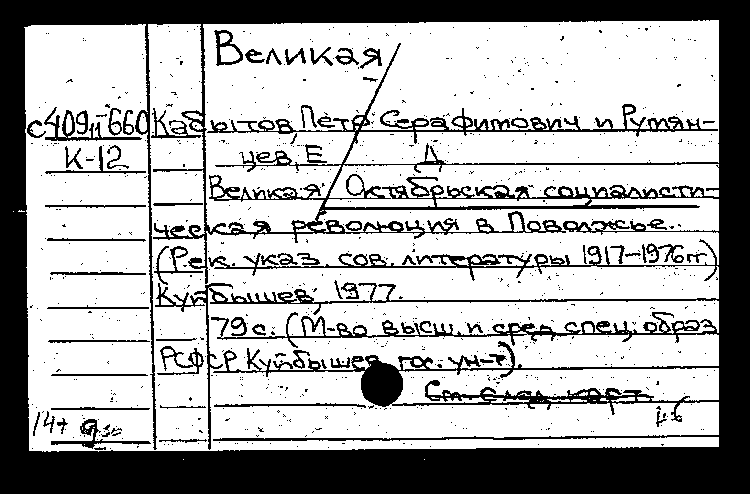 Великая
с409п-660 Кабытов, Петр Серафимович и Румян-
К-12 цев, Е Д
Великая Октябрьская социалисти-
ческая революция в Поволжье.
(Рек. указ. сов. литературы 1917-1976гг)
Куйбышев, 1977.
79с. (М-во высш. и сред. спец. образ
РСФСР Куйбышев. гос. ун-т).
См. след. карт.